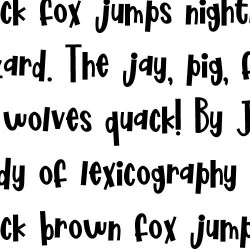 ck fox jumps night
ard. The jay, pig, f
wolves quack! By J
dy of lexicography
ck brown fox jump